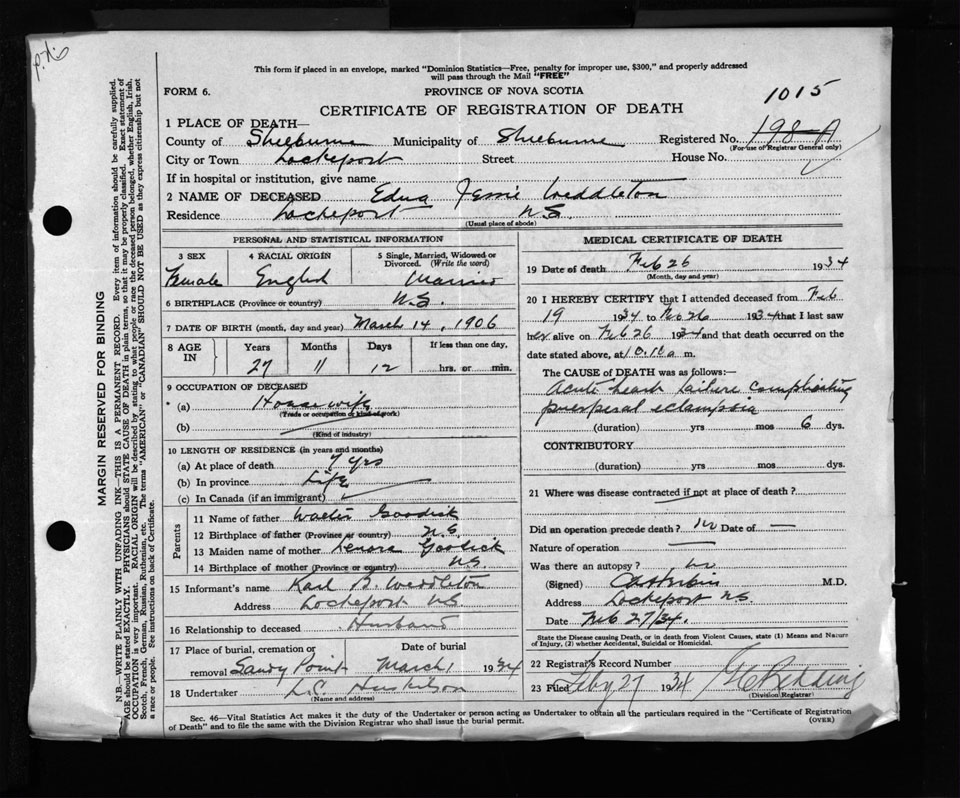 This form if placed in an envelope, marked "Dominion Statistics—Free, penalty for improper use, $300," and properly addressed
will pass through the Mail "FREE"
FORM 6.
PROVINCE OF NOVA SCOTIA
1015
CERTIFICATE OF REGISTRATION OF DEATH
1 PLACE OF DEATH—
County of Shelburne Municipality of Shelburne Registered No. 198-A
(For use of Registrar General only)
City or Town Lockeport Street House No.
If in hospital or institution, give name
2 NAME OF DECEASED Edna Jessie Weddleton
Residence Lockeport N.S.
(Usual place of abode)
PERSONAL AND STATISTICAL INFORMATION
3 SEX 4 RACIAL ORIGIN 5 Single, Married, Widowed or Divorced. (Write the word)
Female English Married
6 BIRTHPLACE (Province or country) N.S.
7 DATE OF BIRTH (month, day and year) March 14, 1906
8 AGE IN Years Months Days If less than one day,
27 11 12 hrs. or min.
9 OCCUPATION OF DECEASED
* (a) House wife
(Trade or occupation or kind of work)
(b)
(Kind of industry)
10 LENGTH OF RESIDENCE (in years and months)
(a) At place of death 7 yrs
(b) In province Life
(c) In Canada (if an immigrant)
Parents
11 Name of father Walter Goodick
12 Birthplace of father (Province or country) N.S.
13 Maiden name of mother Lenora Goodick
14 Birthplace of mother (Province or country) N.S.
15 Informant's name Karl B. Weddleton
Address Lockeport N.S.
16 Relationship to deceased Husband
17 Place of burial, cremation or removal Date of burial
Sandy Point March 1 1934
18 Undertaker Huskilson
(Name and address)
MEDICAL CERTIFICATE OF DEATH
19 Date of death Feb 26 1934
(Month, day and year)
20 I HEREBY CERTIFY that I attended deceased from Feb
19 1934 to Feb 26 1934 that I last saw
her alive on Feb 26 1934 and that death occurred on the
date stated above, at 10.10 a m.
The CAUSE of DEATH was as follows:—
Acute heart failure complicating
puerperal eclampsia
(duration) yrs mos 6 dys.
CONTRIBUTORY
(duration) yrs mos dys.
21 Where was disease contracted if not at place of death?
Did an operation precede death? no Date of —
Nature of operation —
Was there an autopsy? no
(Signed) M.D.
Address Lockeport N.S.
Date Feb 27/34.
State the Disease causing Death, or in death from Violent Causes, state (1) Means and Nature of Injury, (2) whether Accidental, Suicidal or Homicidal.
22 Registrar's Record Number
23 Filed Feby 27 1934 Redding
(Division Registrar)
Sec. 46—Vital Statistics Act makes it the duty of the Undertaker or person acting as Undertaker to obtain all the particulars required in the "Certificate of Registration
of Death" and to file the same with the Division Registrar who shall issue the burial permit. (OVER)
MARGIN RESERVED FOR BINDING
N.B.—WRITE PLAINLY WITH UNFADING INK—THIS IS A PERMANENT RECORD. Every item of information should be carefully supplied.
AGE should be stated EXACTLY. PHYSICIANS should STATE CAUSE OF DEATH in plain terms, so that it may be properly classified. Exact statement of
OCCUPATION is very important. RACIAL ORIGIN will be described by stating to what people or race the deceased person belonged, whether English, Irish,
Scotch, French, German, Russian, Ruthenian, etc. The terms "AMERICAN" or "CANADIAN" SHOULD NOT BE USED as they express citizenship but not
a race or people. See instructions on back of Certificate.